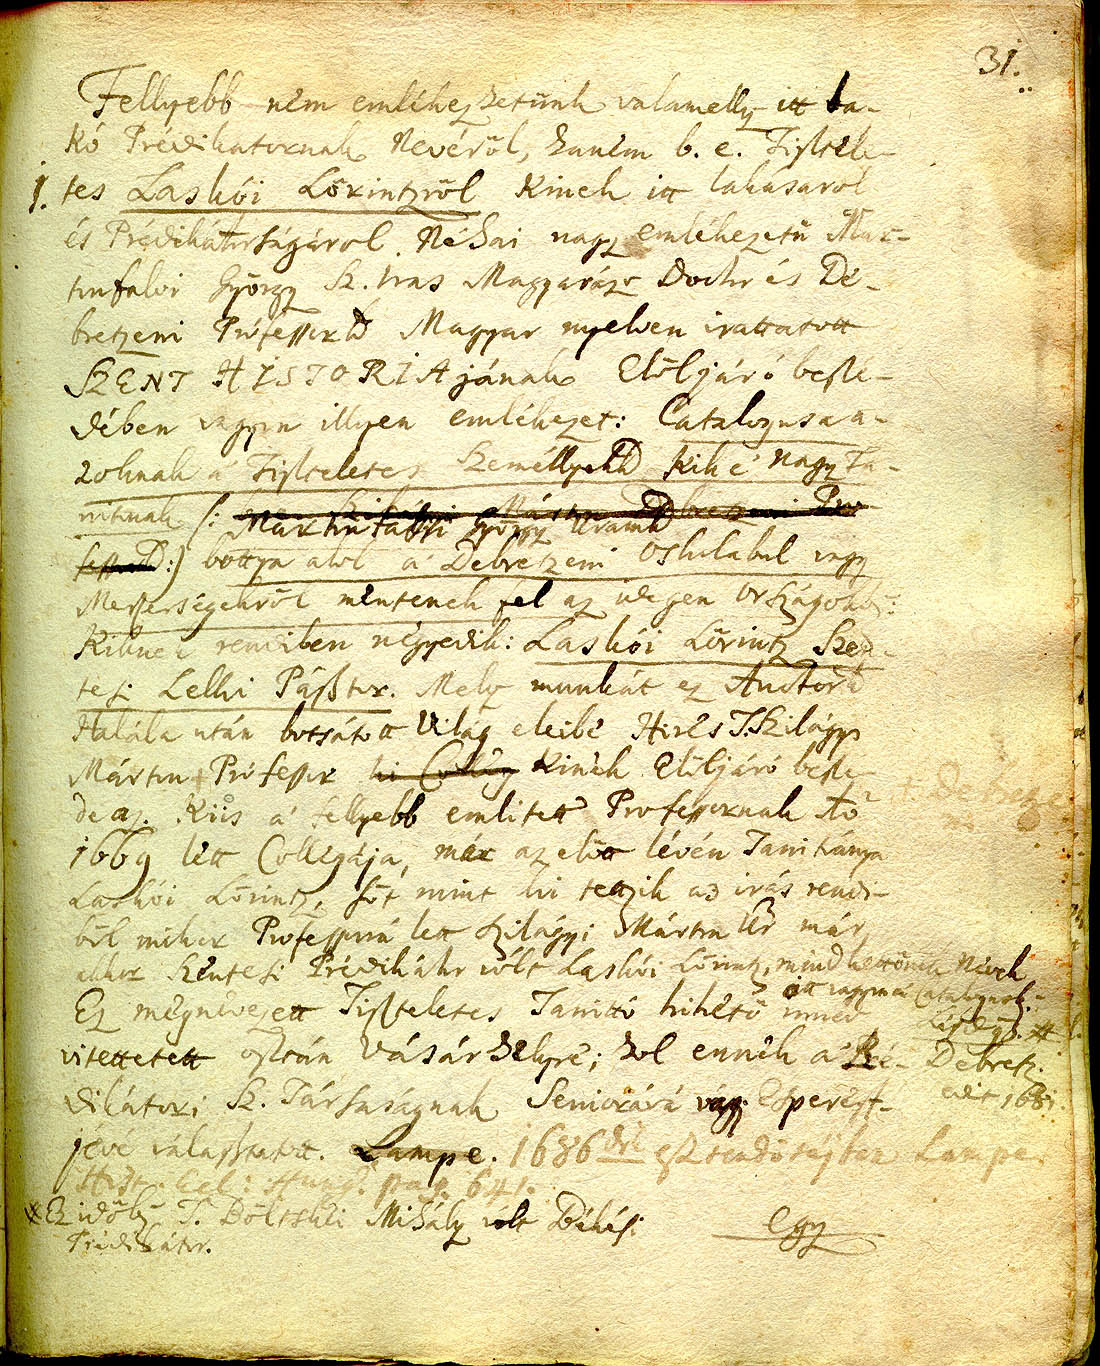 31.
Fellyebb nem emlékezhetünk valamelly itt la-
kó Prédikátornak Nevéröl, hanem b. e. Tisztele-
1. tes Laskói Lörintzröl Kinek itt lakásaról
és Prédikátorságáról Néhai nagy emlékezetü Mar-
tonfalvi György Sz. Iras Magyarázo Doctor és De-
bretzeni Professor Magyar nyelven irattatott
SZENT HISTORIAjának Elöljáró beszé-
dében vagyon illyen emlékezet: Catalogusa a-
zoknak a Tiszteletes Személlyeknek Kik é nagy Ta-
nitonak (: Martonfalvi György Uramnak
:) bottya alol a Debretzeni Oskolabul vagy
Mesterségekröl mentenek fel az idegen Országokb:
Kiknek rendiben negyedik: Laskói Lörintz Szen-
tesi Lelki Pásztor. Mely munkát ez Auctornak
Halála után botsátott Világ eleibe Hires T. Szilágyi
Márton + Professor Kinek Elöljáró beszé-
de az. Ki is a fellyebb emlitett Professornak Ao
1669 lett Collegája, már az elött lévén Tanitványa
Laskói Lörintz, söt mint ki tetzik az irás rendi-
böl mikor Professorrá lett Szilágyi Márton Ur már
akkor Szentesi Prédikátor vólt Laskói Lörintz, mind kettönek Nevek
ott vagyon a Catalogusb.
Ez megnevezett Tiszteletes Tanitó hihetö innen
vitettetett osztán Vásárhelyre; hol ennek a Pré-
Debretz.
edit 1681.
dikátori Sz. Társaságnak Seniorává vagy Esperest-
jévé választatott. Lampe. 1686 esztendö tájban Lampe
Hist. Eccl: Hung. pag. 641.
x Ez idöb. T. Böltskei Mihály vólt Békési
Prédikátor.
Egy